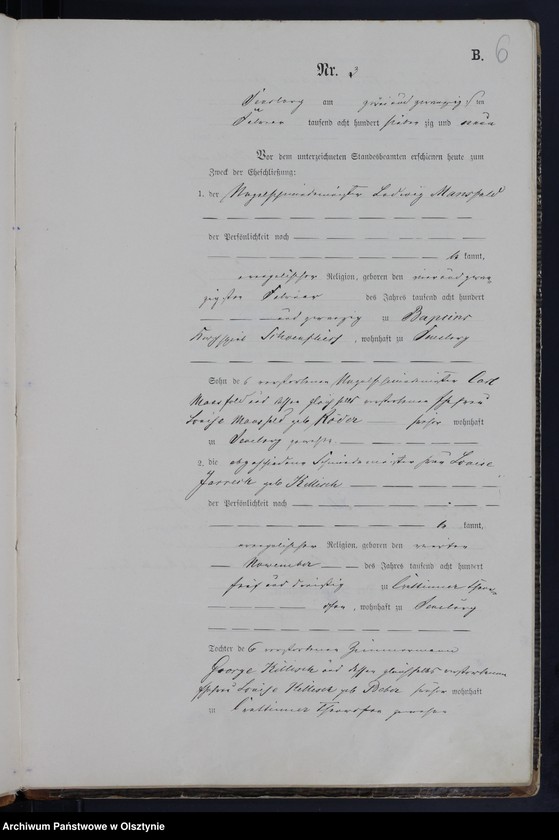 B. 6
Nr. 3
Sensburg am zwei und zwanzigsten
Februar tausend acht hundert sieben zig und neun
Vor dem unterzeichneten Standesbeamten erschienen heute zum
Zweck der Eheschließung:
1. der Nagelschmiedemeister Ludwig Mansfeld
der Persönlichkeit nach
be kannt,
evangelischer Religion, geboren den vier und zwan
zigsten Februar des Jahres tausend acht hundert
und zwanzig zu
Kirchspiel Schoenfliess, wohnhaft zu Sensburg
Sohn des verstorbenen Nagelschmiedmeister Carl
Mansfeld und dessen gleichfalls verstorbenen Ehefrau
Louise Mansfeld geb. Röder früher wohnhaft
zu Sensburg gewesen
2. die abgeschiedene Schmiedemeister frau Louise
geb. Killisch
der Persönlichkeit nach
be kannt,
evangelischer Religion, geboren den vierten
November des Jahres tausend acht hundert
fünf und dreissig zu Cruttinner
ofen, wohnhaft zu Sensburg
Tochter des verstorbenen Zimmermann
George Killisch und dessen gleichfalls verstorbenen
Ehefrau Louise Killisch geb. früher wohnhaft
zu Cruttinner gewesen
Archiwum Państwowe w Olsztynie